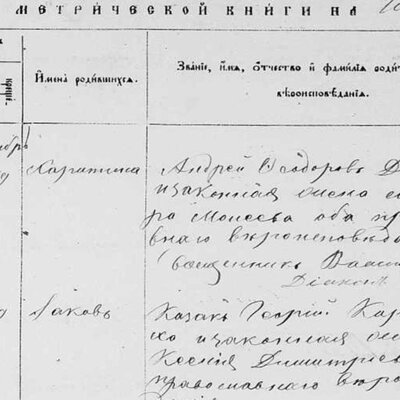 МЕТРИЧЕСКОЙ КНИГИ НА
Имена родившихся.
Званіе, имя, отчество и фамилія
вѣроисповѣданія.
Андрей Ѳеодоровъ
и законная жена его
ра Моисеева оба пр
внаго вѣроисповѣд
Священникъ Васи
Діаконъ
Іаковъ
Казакъ Георгій Кар
ко и законная
Ксенія Димитріев
православнаго вѣро